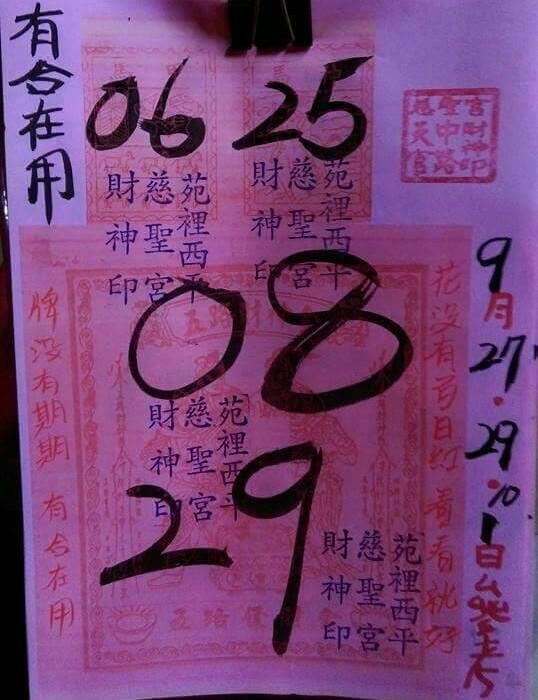 有合在用
06 25
慈聖宮
天中財
官路神印
苑裡西平
慈聖宮
財神印
苑裡西平
慈聖宮
財神印
08
苑裡西平
慈聖宮
財神印
29
苑裡西平
慈聖宮
財神印
花没有百日紅 看看就好
牌没有期期 有合在用
9月27.29.10.1日